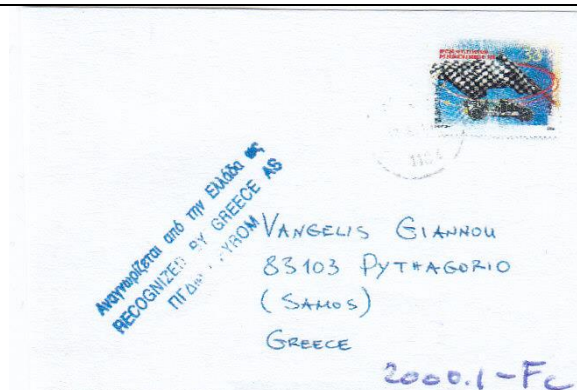 33
Αναγνωρίζεται από την Ελλάδα ως
RECOGNIZED BY GREECE AS
VANGELIS GIANNOU
83103 PYTHAGORIO
(SAMOS)
GREECE
2000.1-Fc